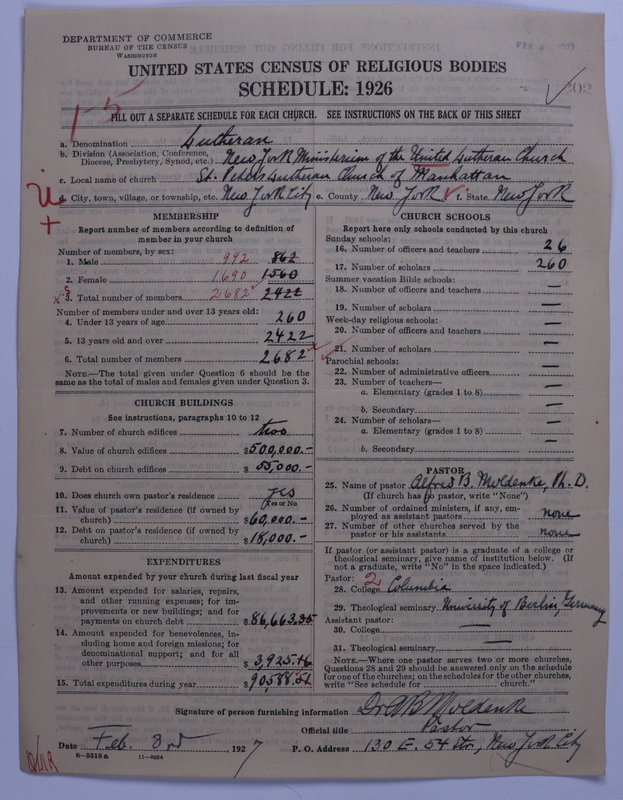 DEPARTMENT OF COMMERCE
BUREAU OF THE CENSUS
WASHINGTON
UNITED STATES CENSUS OF RELIGIOUS BODIES
SCHEDULE: 1926
1-5
FILL OUT A SEPARATE SCHEDULE FOR EACH CHURCH. SEE INSTRUCTIONS ON THE BACK OF THIS SHEET
a. Denomination Lutheran
b. Division (Association, Conference, Diocese, Presbytery, Synod, etc.) New York Ministerium of the United Lutheran Church
c. Local name of church St. Peters Lutheran Church of Manhattan
d. City, town, village, or township, etc. New York City e. County New York f. State New York
MEMBERSHIP
Report number of members according to definition of
member in your church
Number of members, by sex:
1. Male 992 862
2. Female 1690 1560
3. Total number of members 2682 2422
Number of members under and over 13 years old:
4. Under 13 years of age 260
5. 13 years old and over 2422
6. Total number of members 2682
NOTE.—The total given under Question 6 should be the
same as the total of males and females given under Question 3.
CHURCH BUILDINGS
See instructions, paragraphs 10 to 12
7. Number of church edifices two
8. Value of church edifices $500,000.-
9. Debt on church edifices $55,000.-
10. Does church own pastor's residence yes
Yes or No
11. Value of pastor's residence (if owned by
church) $60,000.-
12. Debt on pastor's residence (if owned by
church) $18,000.-
EXPENDITURES
Amount expended by your church during last fiscal year
13. Amount expended for salaries, repairs,
and other running expenses; for im-
provements or new buildings; and for
payments on church debt $86,663.35
14. Amount expended for benevolences, in-
cluding home and foreign missions; for
denominational support; and for all
other purposes $3,925.16
15. Total expenditures during year $90588.51
CHURCH SCHOOLS
Report here only schools conducted by this church
Sunday schools:
16. Number of officers and teachers 26
17. Number of scholars 260
Summer vacation Bible schools:
18. Number of officers and teachers —
19. Number of scholars —
Week-day religious schools:
20. Number of officers and teachers —
21. Number of scholars —
Parochial schools:
22. Number of administrative officers —
23. Number of teachers—
a. Elementary (grades 1 to 8) —
b. Secondary —
24. Number of scholars—
a. Elementary (grades 1 to 8) —
b. Secondary —
PASTOR
25. Name of pastor Alfred B. Moldenke, Ph. D.
(If church has no pastor, write "None")
26. Number of ordained ministers, if any, em-
ployed as assistant pastors none
27. Number of other churches served by the
pastor or his assistants none
If pastor (or assistant pastor) is a graduate of a college or
theological seminary, give name of institution below. (If
not a graduate, write "No" in the space indicated.)
Pastor: 2
28. College Columbia
29. Theological seminary University of Berlin, Germany
Assistant pastor:
30. College —
31. Theological seminary —
NOTE.—Where one pastor serves two or more churches,
Questions 28 and 29 should be answered only on the schedule
for one of the churches; on the schedules for the other churches,
write "See schedule for church."
Signature of person furnishing information Dr. A B Moldenke
Official title Pastor
Date Feb. 3rd, 1927 P. O. Address 130 E. 54 Str., New York City
8-5318a 11-9554